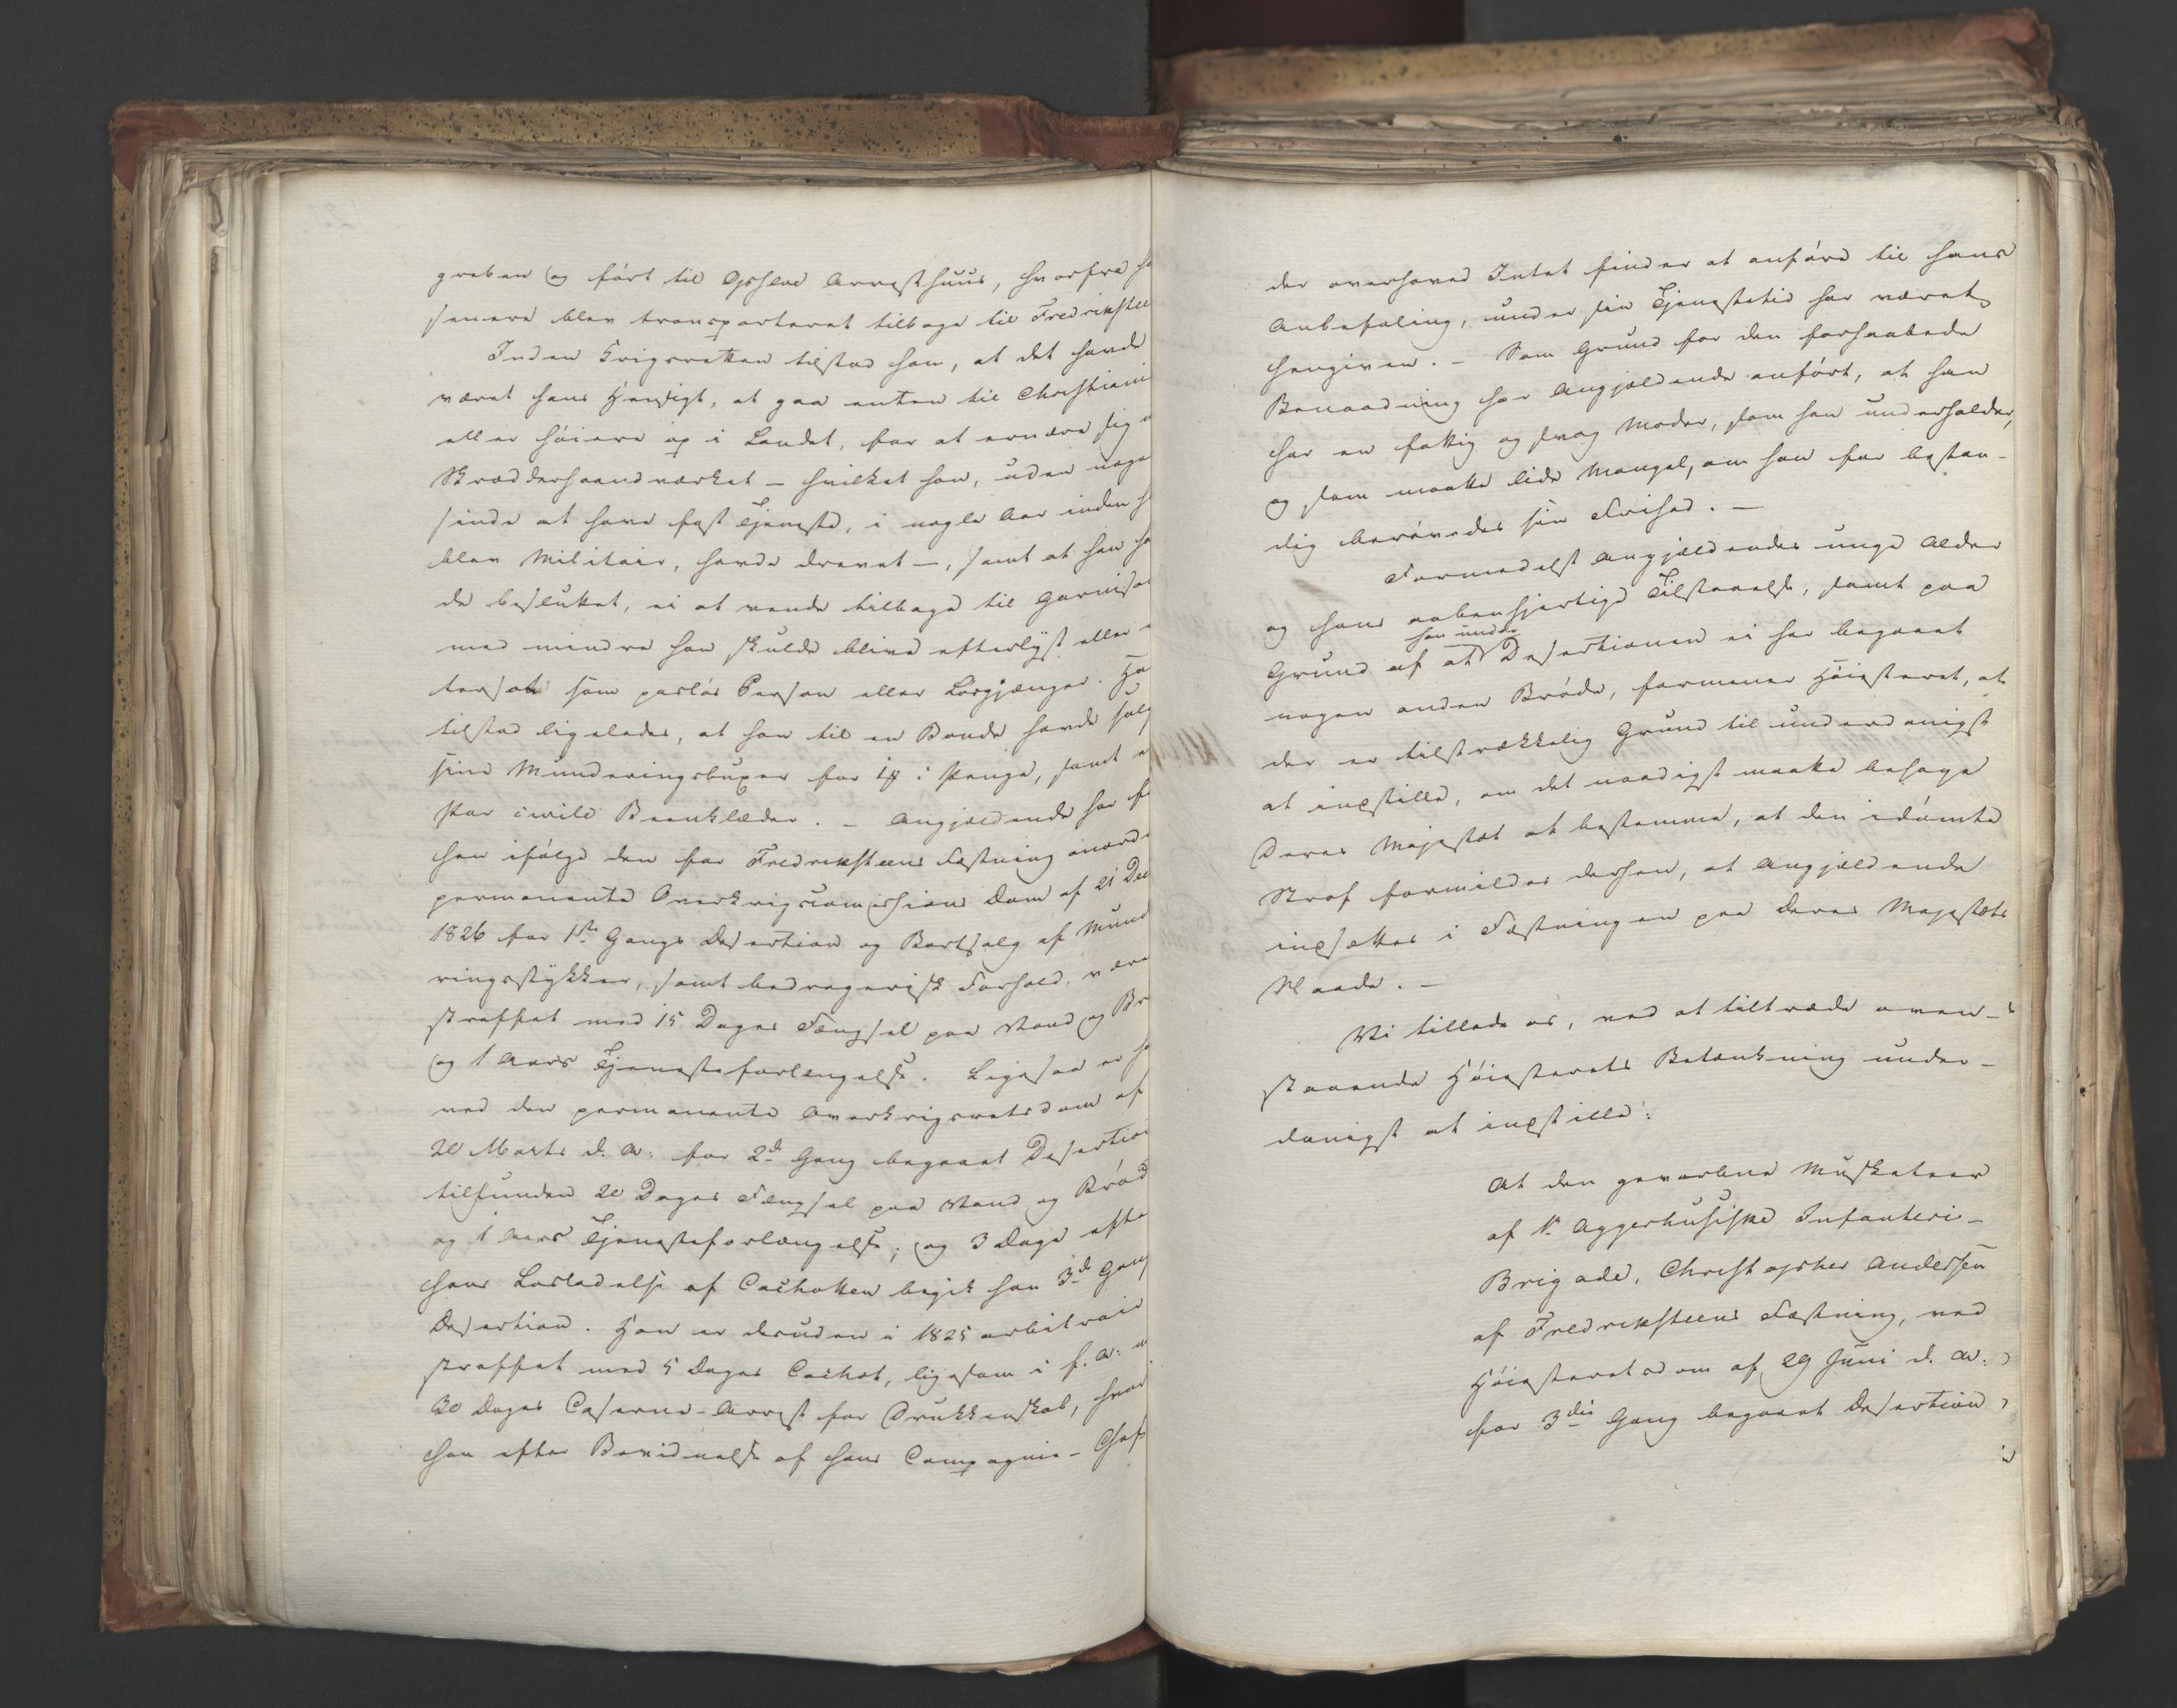 greben og ført til Opsloe Arresthuus, hvorfra h
senere blev transporteret tilbage til Fredrikstee
Inden Krigsretten tilstod han, at det havde
været hans Hensigt, at gaa enten til Christiani
eller høiere op i Landet, for at ernære sig
Skrædderhaandværket – hvilket han, uden noge
sinde at have fast Tjeneste, i nogle Aar inden h
blev Militair, havde drevet –, samt at han ha
de besluttet, ei at vende tilbage til Garniso
med mindre han skulde blive efterlyst eller
som paslös Person eller Løsgjænger. Ha
tilstod ligeledes, at han til en Bonde havde solg
sine Munderingsbuxer for i Penge, samt
Par civile Beenklæder. – Angjældende har f
hen ifølge den for Fredriksteens Fæstning anord
permanente Overkrigscommissions Dom af 21 Dec
1826 for 1ste Gangs Desertion og Bortsalg af Mund
ringsstykker, samt bedragerisk Forhold, være
straffet med 15 Dages Fængsel paa Vand og Br
og 1 Aars Tjenesteforlængelse. Ligesaa er h
ved den permanente Overkrigsretsdom af
20 Marts d. A. for 2d Gang begaaet Desertion
tilfunden 20 Dages Fængsel paa Vand og Brød
og 1 Aars Tjenesteforlængelse; og 3 Dage efte
hans Løsladelse af Cachotten begik han 3de Gang
Desertion. Han er desuden i 1825 arbitrair
straffet med 5 Dages Cachot, ligesom i f. A.
30 Dages Caserne-Arrest for Drukkenskab, hvor
han efter Bevidnelse af hans Compagnie-Chef
der overhoved Intet finder at anføre til hans
Anbefaling, under sin Tjenestetid har været
hengiven. – Som Grund for den forhaabede
Benaadning har Angjældende anført, at han
har en fattig og svag Moder, som han underholder,
og som maatte lide Mangel, om han for bestan-
dig berøvedes sin Frihed. –
Formedelst Angjældendes unge Alder
og hans aabenhjertige Tilstaaelse, samt paa
han under
Grund af at Desertionen ei har begaaet
nogen anden Brøde, formener Høiesteret, at
der er tilstrækkelig Grund til underdanigst
at indstille, om det naadigst maatte behage
Deres Majestæt at bestemme, at den idømte
Straf formildes derhen, at Angjældende
indsættes i Fæstningen paa Deres Majestæts
Naade. –
Vi tillade os, ved at tiltræde oven-
staaende Høiesterets Betænkning under-
danigst at indstille:
At den gevorbne Musketeer
af Aggershusiske Infanteri-
Brigade, Christopher Andersen
af Fredriksteens Fæstning, ved
Høiesteretsdom af 29 Juni d. A.
for 3die Gang begaaet Desertion